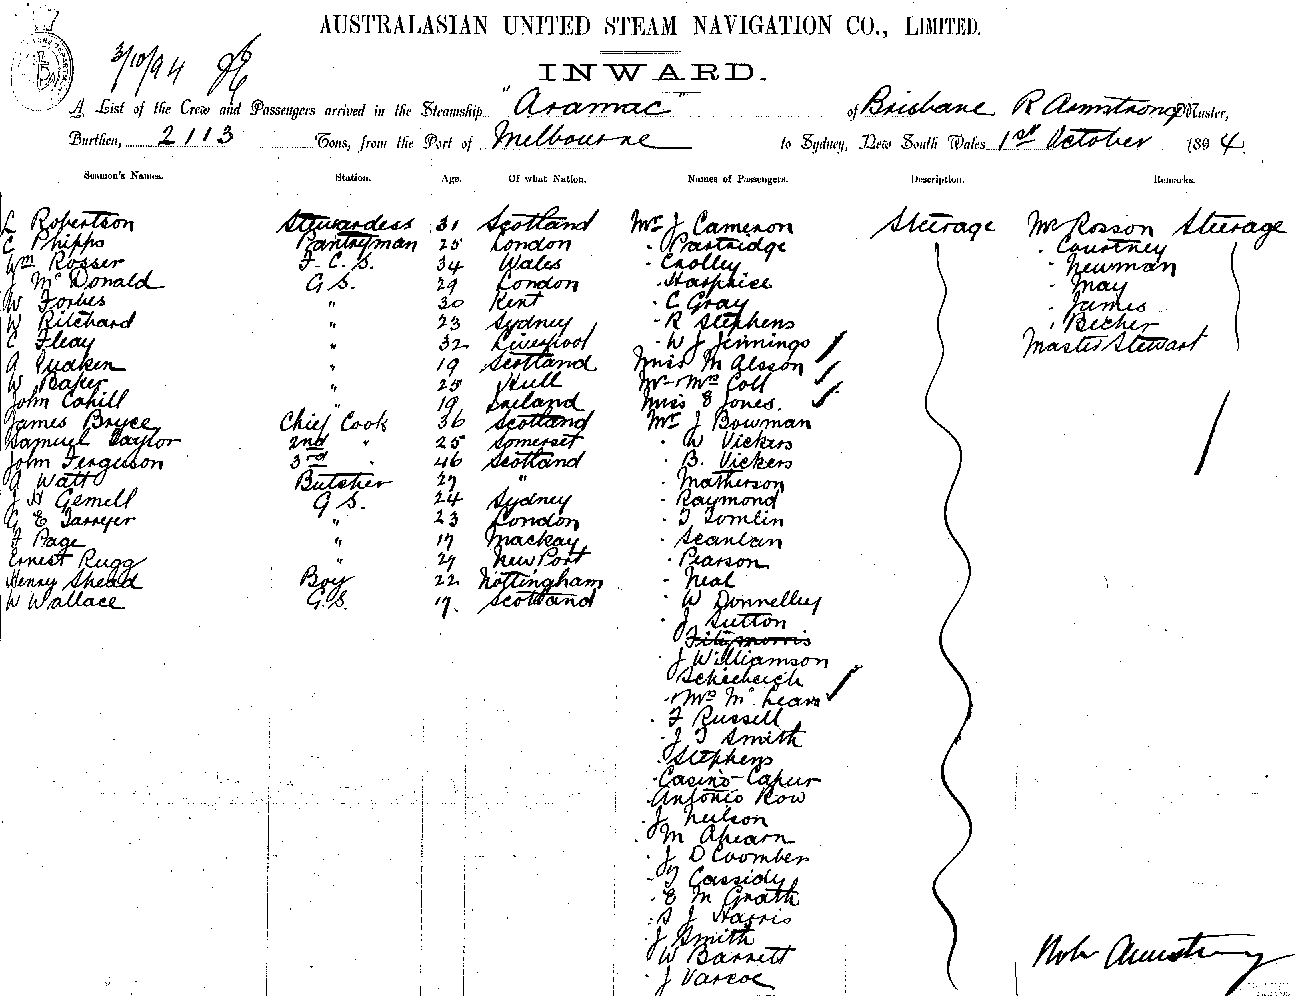 AUSTRALASIAN UNITED STEAM NAVIGATION CO., LIMITED.
3/10/94
INWARD.
A List of the Crew and Passengers arrived in the Steamship "Aramac" of Brisbane R Armstrong Master,
Burthen, 2113 Tons, from the Port of Melbourne to Sydney, New South Wales 1st October 1894.
Seamen's Names. Station. Age. Of what Nation. Names of Passengers. Description. Remarks.
L Robertson Stewardess 31 Scotland Mr J Cameron Steerage Mr Rosson Steerage
C Phipps Pantryman 25 London Partridge Courtney
Wm Rosser F.C.S. 34 Wales Cholley Newman
J McDonald G S. 29 London Harphice May
W Forbes " 30 Kent C Gray James
W Ritchard " 23 Sydney R Stephens Becher
C Fleay " 32 Liverpool W J Jennings Master Stewart
A Quaken " 19 Scotland Miss M Alsson
W Baker " 25 Hull Mr Mrs Coll
John Cahill " 19 Ireland Miss E Jones.
James Bryce Chief Cook 36 Scotland Mr J Bowman
Samuel Taylor 2nd " 25 Somerset W Vickers
John Ferguson 3rd 46 Scotland B. Vickers
A Watt Butcher 29 " Matherson
J H Gemell G S. 24 Sydney Raymond
G E Tarryer " 23 London T Tomlin
F Page " 19 Mackay Scanlan
Ernest Rugg " 29 New Port Pearson
Henry Shead Boy 22 Nottingham Neal
W Wallace G.S. 19. Scotland W Donnelley
J Sutton
Fitzmorris
J Williamson
Mrs
F Russell
J T Smith
Stephens
Casino Capur
Antonio Row
J Neilson
M Ahearn
J D Coomber
J Cassidy
E McGrath
J Harris
J Smith
W Barrett
J Varcoe
Robt Armstrong